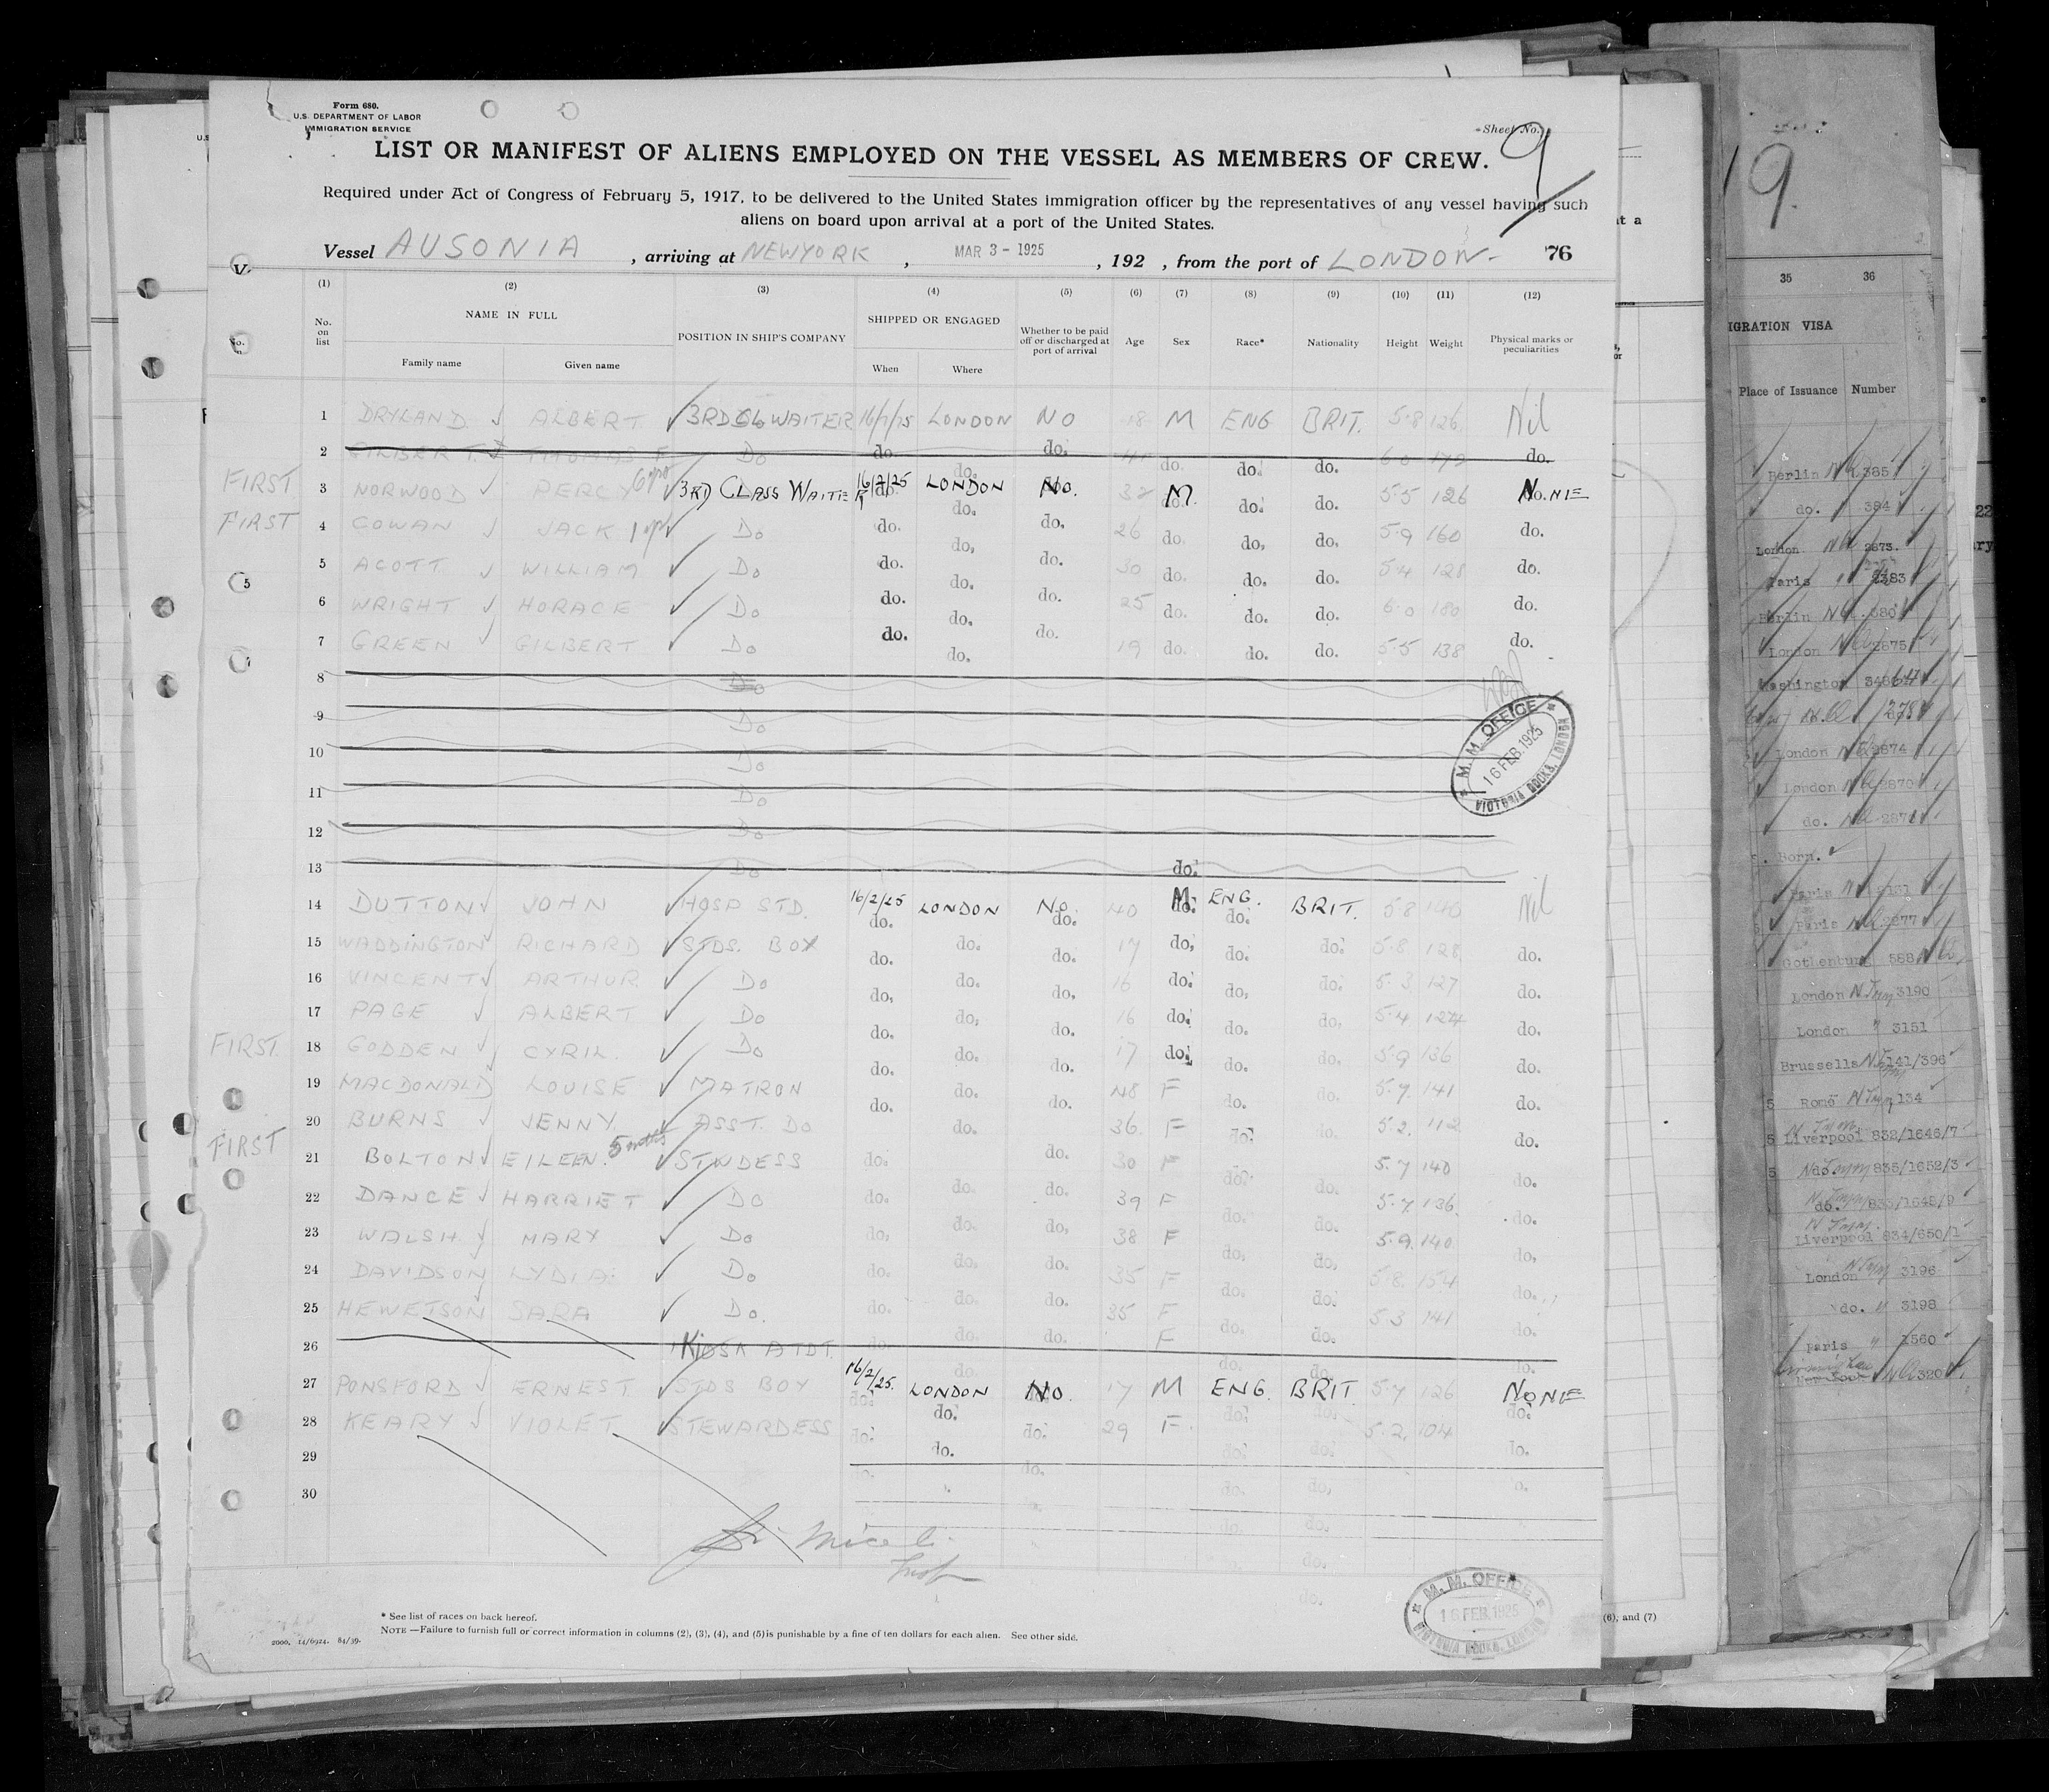 Form 680.
U.S. DEPARTMENT OF LABOR
IMMIGRATION SERVICE
Sheet No. 9
LIST OR MANIFEST OF ALIENS EMPLOYED ON THE VESSEL AS MEMBERS OF CREW.
Required under Act of Congress of February 5, 1917, to be delivered to the United States immigration officer by the representatives of any vessel having such
aliens on board upon arrival at a port of the United States.
Vessel AUSONIA, arriving at NEWYORK, MAR 3 - 1925, 192 , from the port of LONDON. 76
(1) (2) (3) (4) (5) (6) (7) (8) (9) (10) (11) (12)
No. on list NAME IN FULL Family name Given name POSITION IN SHIP'S COMPANY SHIPPED OR ENGAGED When Where Whether to be paid off or discharged at port of arrival Age Sex Race* Nationality Height Weight Physical marks or peculiarities
1 DRYLAND ALBERT 3RD WAITER LONDON NO 18 M ENG BRIT. 5·8 126 Nil
2 THOMAS F Do do. do. do. do. do. 6·0 do.
FIRST 3 NORWOOD PERCY 3RD CLASS WAITER 16/2/25 LONDON No. 32 M. do. do. 5·5 126 NONE
FIRST 4 COWAN JACK Do do. do. do. 26 do. do. do. 5·9 160 do.
5 ACOTT WILLIAM Do do. do. do. 30 do. do. do. 5·4 128 do.
6 WRIGHT HORACE Do do. do. do. 25 do. do. do. 6·0 180 do.
7 GREEN GILBERT Do do. do. do. 19 do. do. do. 5·5 138 do.
8 Do
9 Do
10 Do
11 Do
12 Do
13 Do do.
M. M. OFFICE
16 FEB. 1925
VICTORIA DOCKS, LONDON
14 DUTTON JOHN HOSP STD. 16/2/25 LONDON No. 40 M ENG. BRIT. 5·8 140 Nil
15 WADDINGTON RICHARD STDS. BOY do. do. do. 17 do. do. do. 5·8 128 do.
16 VINCENT ARTHUR Do do. do. do. 16 do. do. do. 5·3 127 do.
17 PAGE ALBERT Do do. do. do. 16 do. do. do. 5·4 124 do.
FIRST 18 GODDEN CYRIL. Do do. do. do. 17 do. do. do. 5·9 136 do.
19 MACDONALD LOUISE MATRON do. do. do. 48 F do. do. 5·7 141 do.
20 BURNS JENNY ASST. DO do. do. 36 F do. do. 5·2 112 do.
FIRST 21 BOLTON EILEEN. 5 mths STWDESS do. do. do. 30 F do. do. 5·7 140 do.
22 DANCE HARRIET DO do. do. do. 39 F do. do. 5·7 136 do.
23 WALSH MARY Do do. do. do. 38 F do. do. 5·9 140 do.
24 DAVIDSON LYDIA Do do. do. do. 35 F do. do. 5·8 154 do.
25 HEWETSON SARA Do. do. do. do. 35 F do. do. 5·3 141 do.
26 KIOSK ATDT. do. do. do. F do. do. do.
27 PONSFORD ERNEST STDS BOY 16/2/25. LONDON No. 17 M ENG. BRIT 5·7 126 NONE
28 KEARY VIOLET STEWARDESS do. do. do. 29 F. do. do. 5·2 104 do.
29
30
M. M. OFFICE
16 FEB. 1925
VICTORIA DOCKS, LONDON
* See list of races on back hereof.
NOTE —Failure to furnish full or correct information in columns (2), (3), (4), and (5) is punishable by a fine of ten dollars for each alien. See other side.
2000. 14/6924. 84/39.
(6), and (7)
19.
35 36
IGRATION VISA
Place of Issuance Number
Berlin 385
do. 384
London 2873.
Paris
Berlin
London 2875
Washington
London 2874
London 2870
do.
Born.
Paris
Paris 2877
Gothenburg 588
London 3190
London " 3151
Brussells 141/396
Rome 134
Liverpool 832/1646/7
835/1652/3
do.
Liverpool 834/650/1
London 3196
do. " 3198
Paris " 1560
320